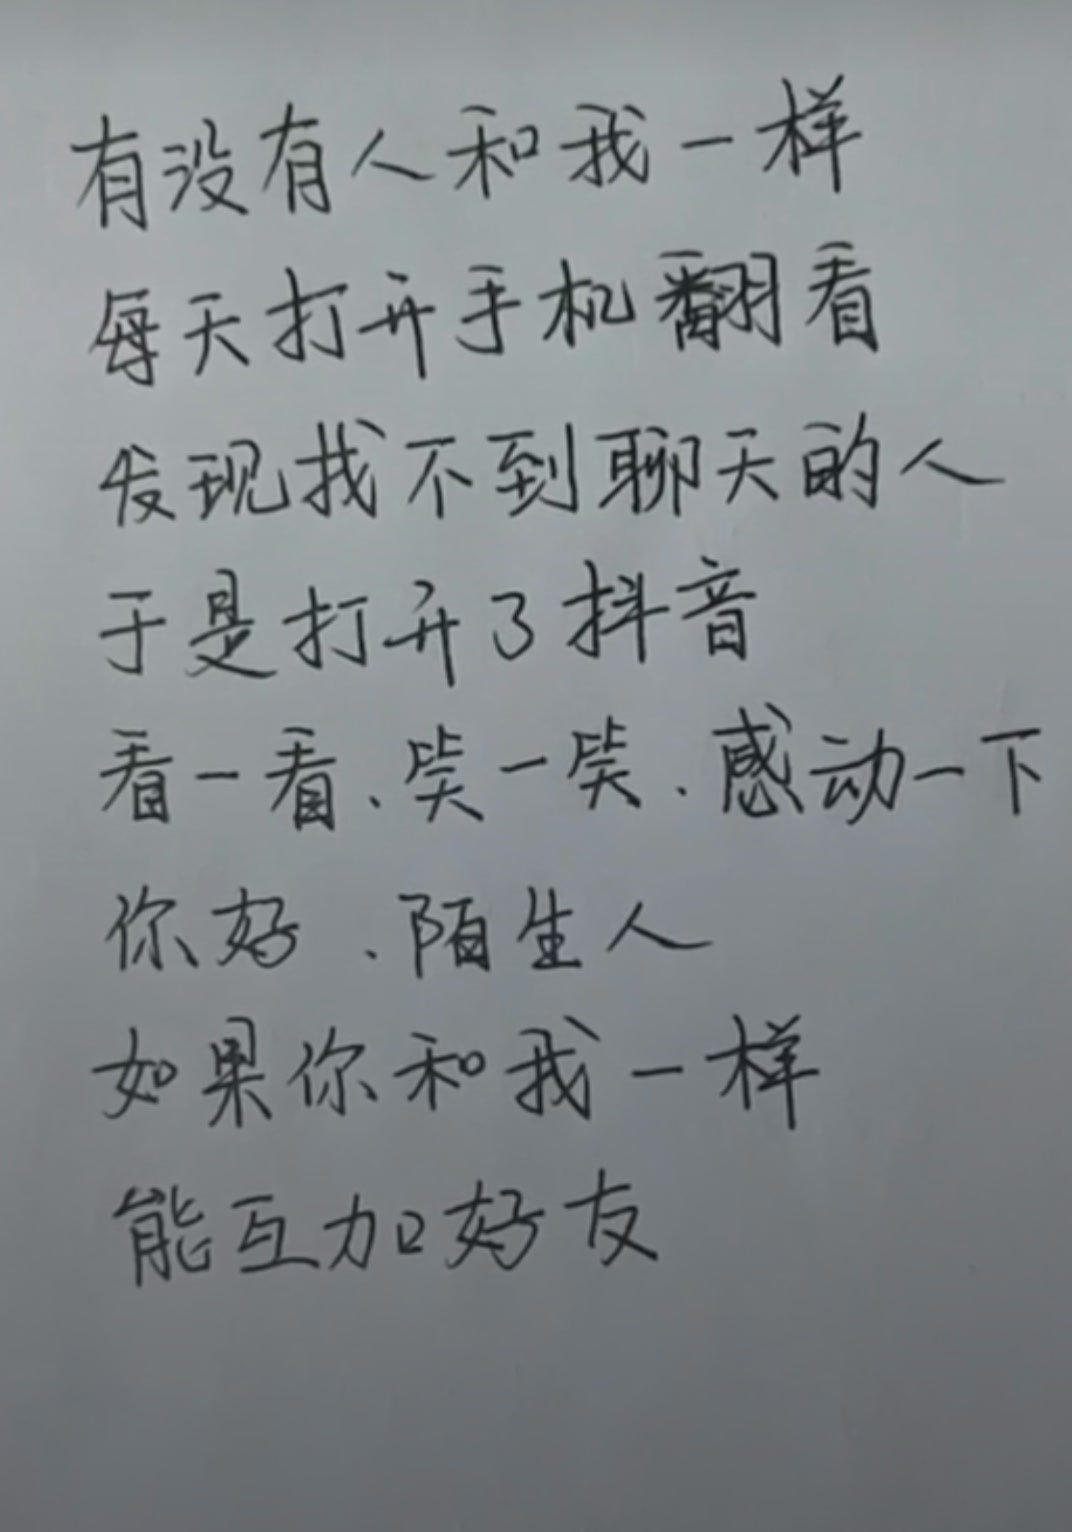 有没有人和我一样
每天打开手机翻看
发现找不到聊天的人
于是打开了抖音
看一看、笑一笑、感动一下
你好、陌生人
如果你和我一样
能互加好友